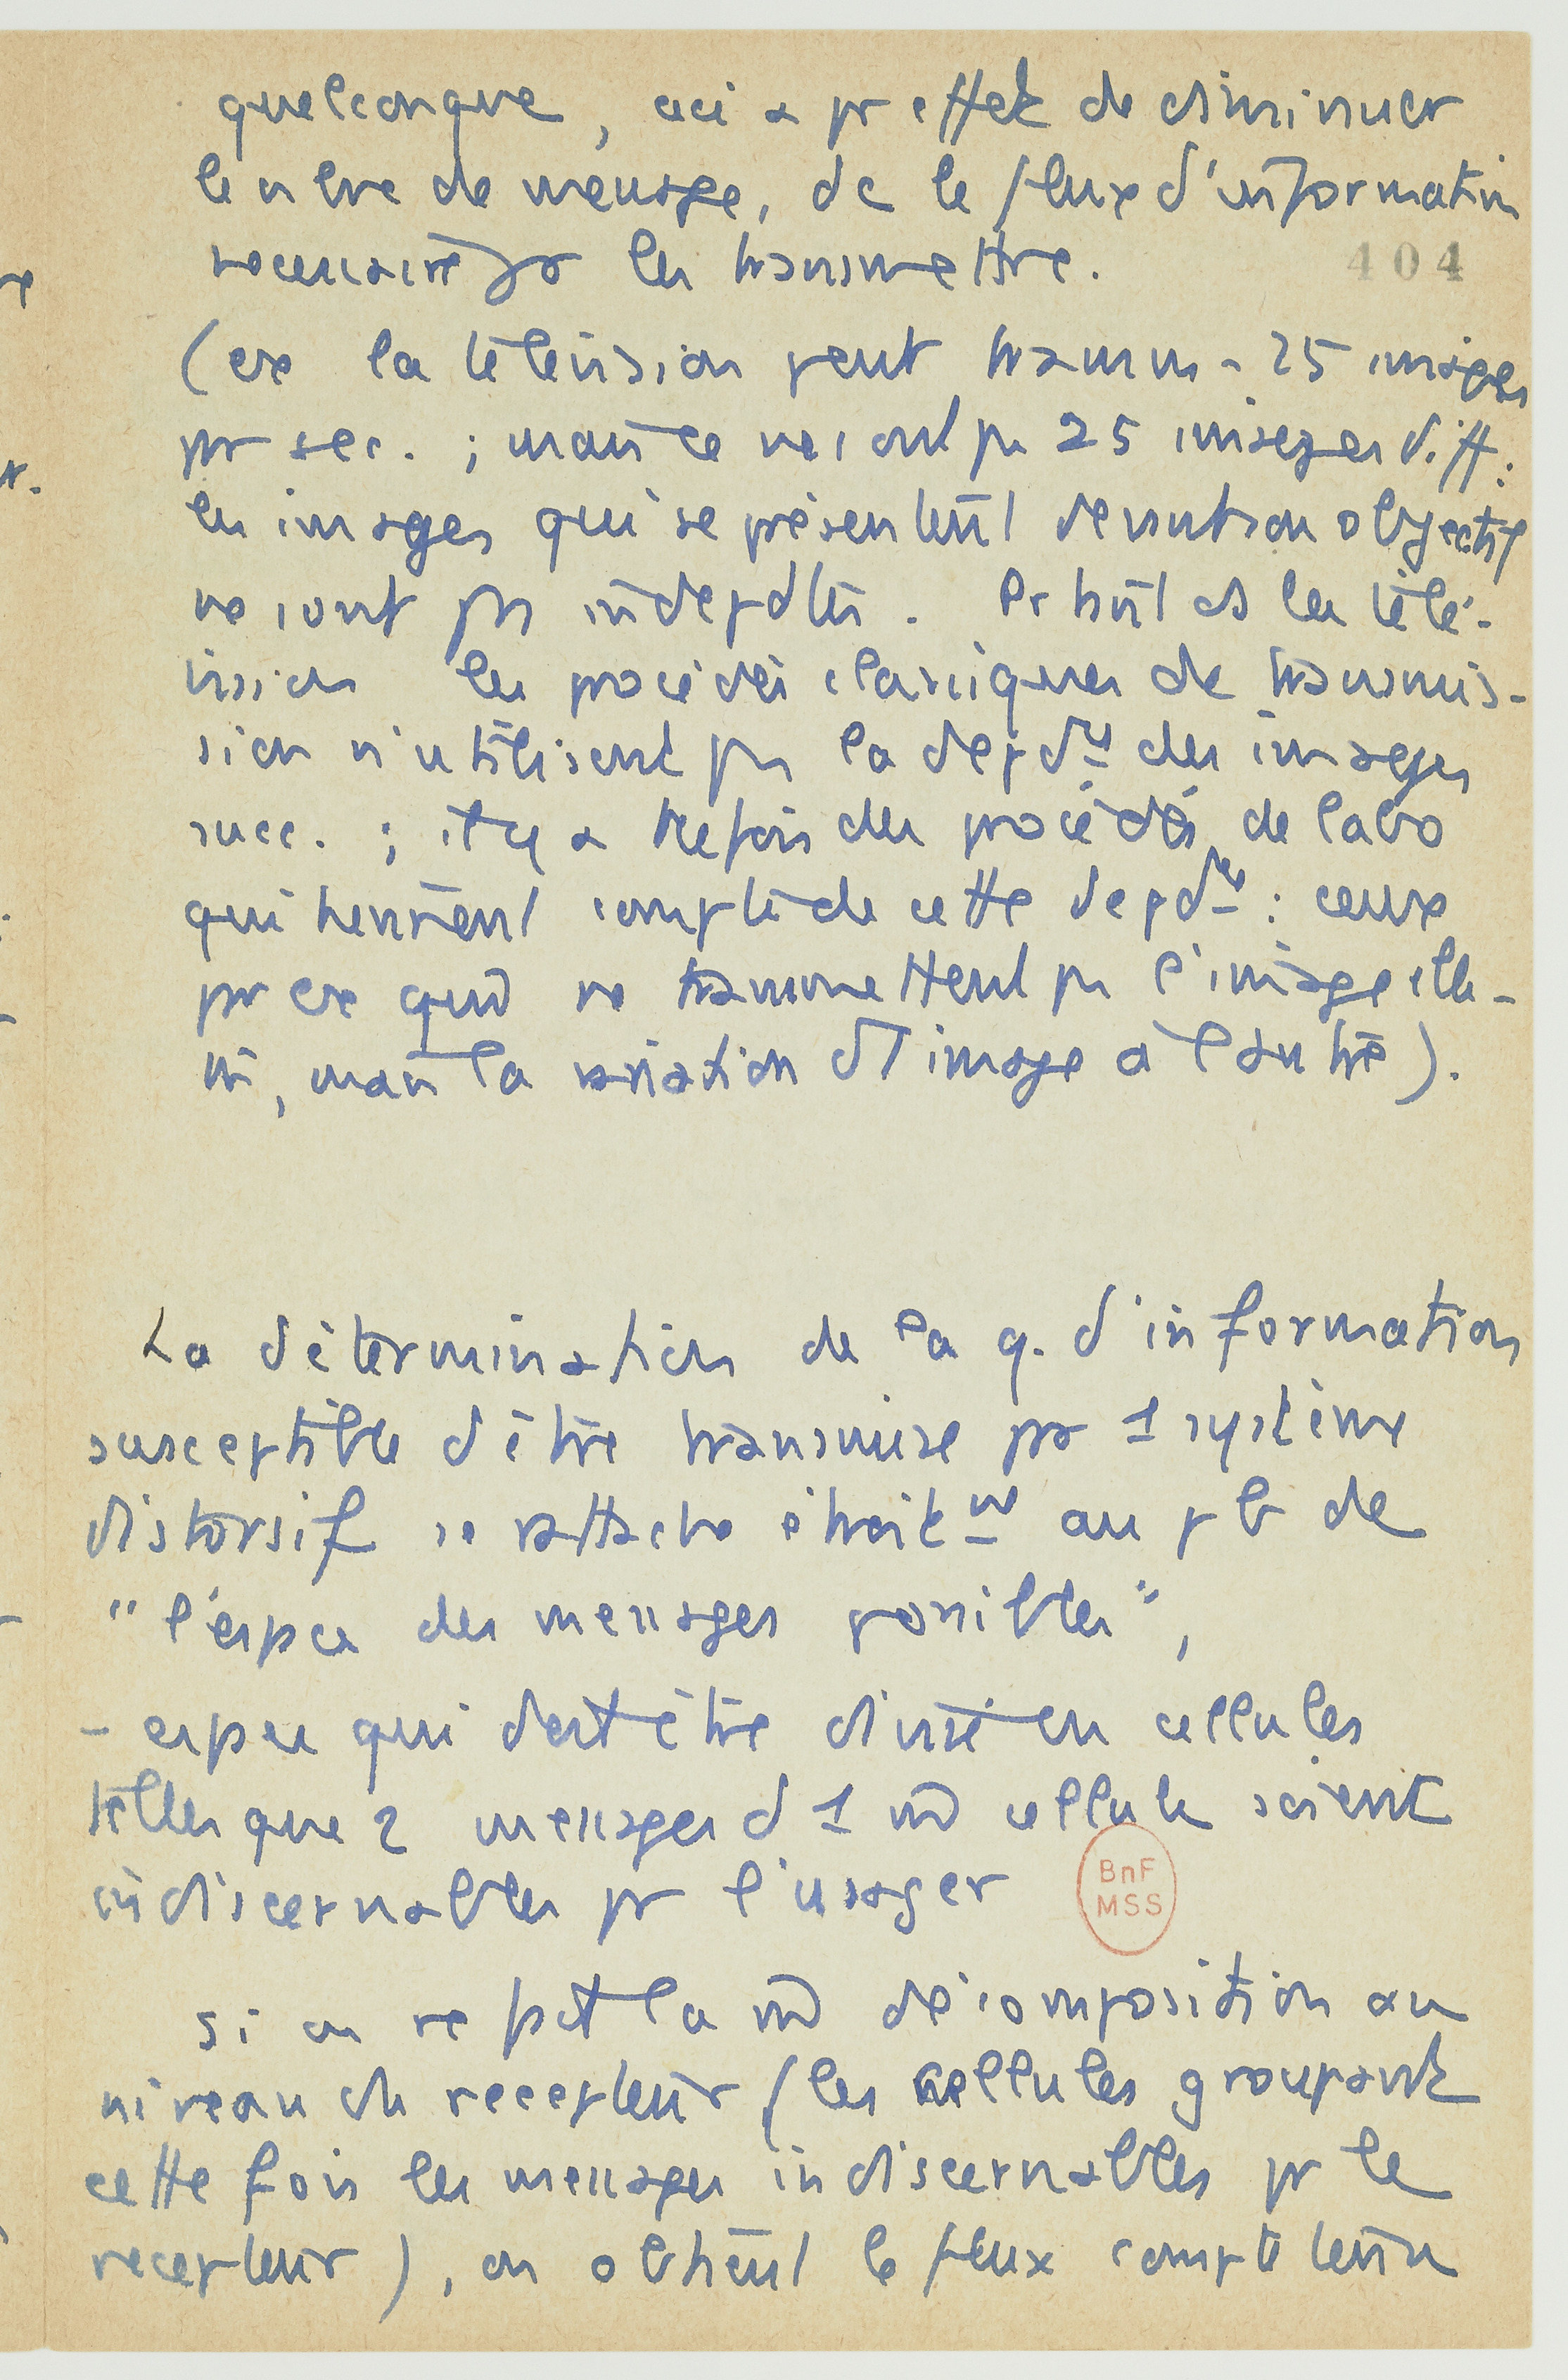 quelconque, ceci a pr effet de diminuer
le nbre de message, dc le flux d'information
nécessaire pr les transmettre.
404
(ex la télévision peut transm. 25 images
pr sec. ; mais ce ne sont ps 25 images diff.:
les images qui se présentent devant son objectif
ne sont ps indepdtes. Pr tant ds la télé-
vision les procédés classiques de transmis-
sion n'utilisent ps la depdce des images
succ. ; il y a ttefois des procédés de labo
qui tiennent compte de cette depdce : ceux
pr ex qui ne transmettent ps l'image elle-
m̄, mais la variation d'1 image à l'autre).
La détermination de la q. d'information
susceptible d'être transmise pr 1 système
distorsif se rattache étroitmt au pb de
"l'espce des messages possibles",
- espce qui doit être divisé en cellules
telles que 2 messages d 1 m̄ cellule soient
indiscernables pr l'usager
BnF
MSS
si on re fait la m̄ décomposition au
niveau du recepteur (les cellules groupant
cette fois les messages indiscernables pr le
recepteur), on obtient le flux compte tenu